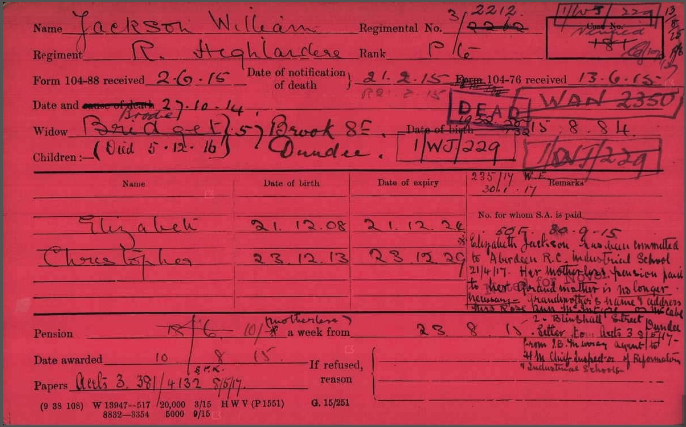 Name Jackson William Regimental No. 3/2212 1/WJ/229
Regiment R. Highlanders Rank Pte
Form 104-88 received 2.6.15 Date of notification of death 21.2.15 Form 104-76 received 13.6.15
Date and cause of death 27.10.14. DEAD WAN 2350
Widow Bridget 57 Brook St Date of birth 15.8.84
Children: (Died 5.12.16) Dundee. 1/WJ/229 1/WJ/229
Name Date of birth Date of expiry Remarks
235/17
30.1.17
No. for whom S.A. is paid
Elizabeth 21.12.08 21.12.24
Christopher 23.12.13 23.12.29
30.9.15
Elizabeth Jackson has been committed
to Aberdeen R.C. Industrial School
21/4/17. Her motherless pension paid
to her Grandmother is no longer
necessary Grandmother's name & address
Mrs Rose Ann
2 Blinshall Street Dundee
Letter
from J.B. Murray agent to
H.M. Chief Inspector of Reformatory
& Industrial Schools
Pension 10/- (motherless) a week from 23 8 15
Date awarded 10 8 15
If refused, reason
Papers Aelts 3. 381/4132 5/5/17.
(9 38 108) W 13947—517 20,000 3/15 H W V (P 1551) G. 15/251
8832—3354 5000 9/15